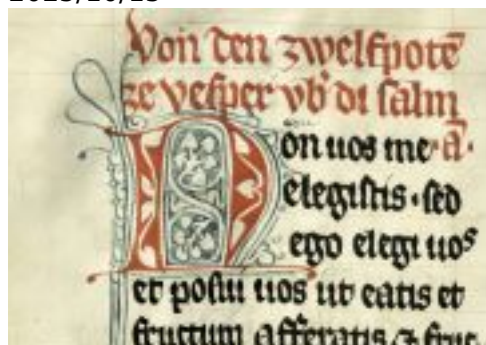 Von den zwelfpotē
ze vesper vb̄ di salm
Non uos me a̅.
elegistis · sed
ego elegi uos
et posui uos ut eatis et
fructum afferatis ⁊ fruc